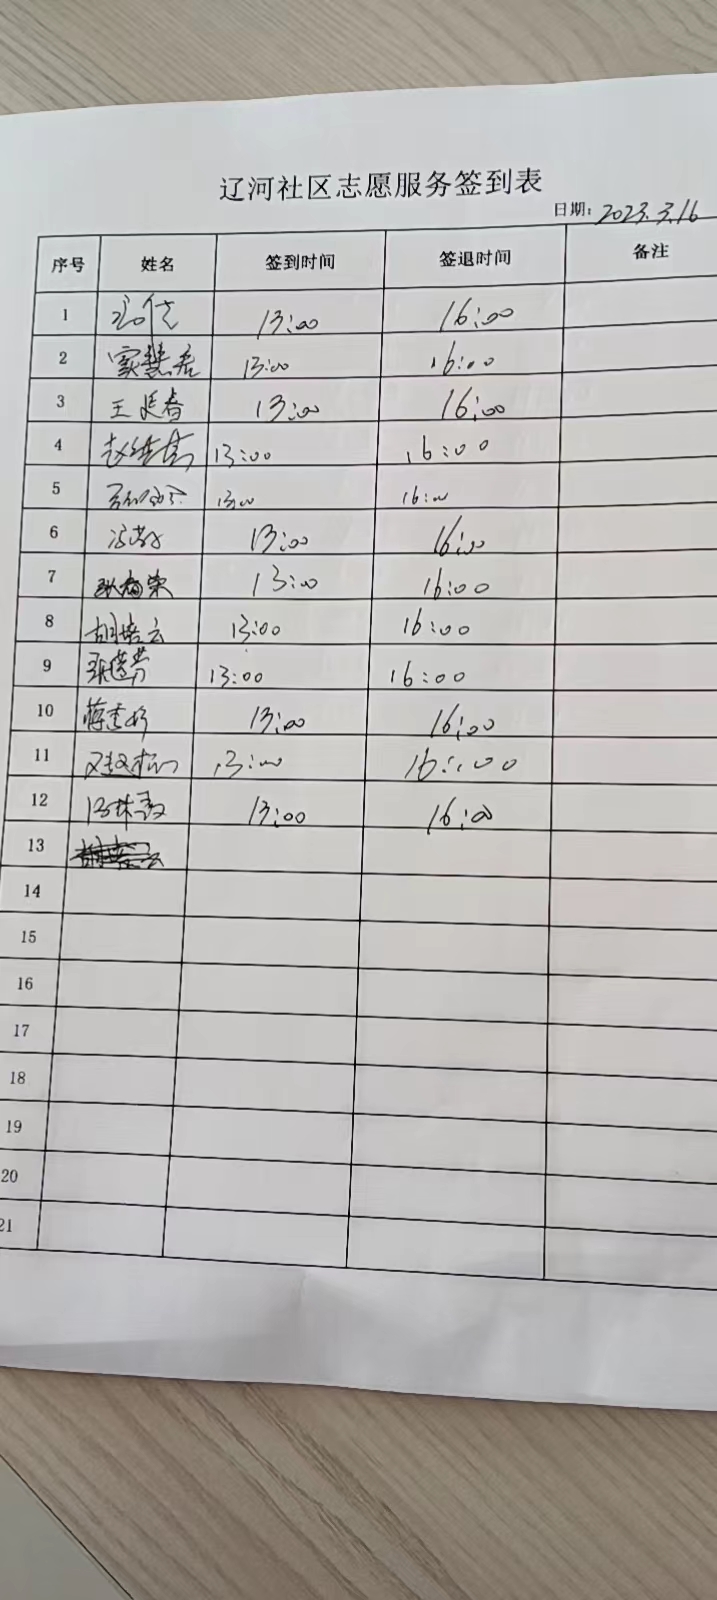 辽河社区志愿服务签到表
日期: 2023.3.16
序号 姓名 签到时间 签退时间 备注
1 13:00 16:00
2 窦慧君 13:00 16:00
3 王廷春 13:00 16:00
4 13:00 16:00
5 13:00 16:00
6 13:00 16:00
7 耿梅荣 13:00 16:00
8 胡培云 13:00 16:00
9 13:00 16:00
10 13:00 16:00
11 13:00 16:00
12 冯林霞 13:00 16:00
13
14
15
16
17
18
19
20
21